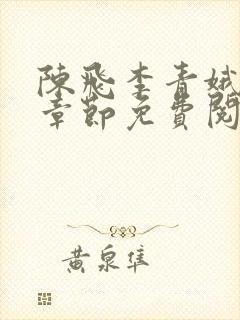 陳飛李青娥
章節免費閱
黃泉隼